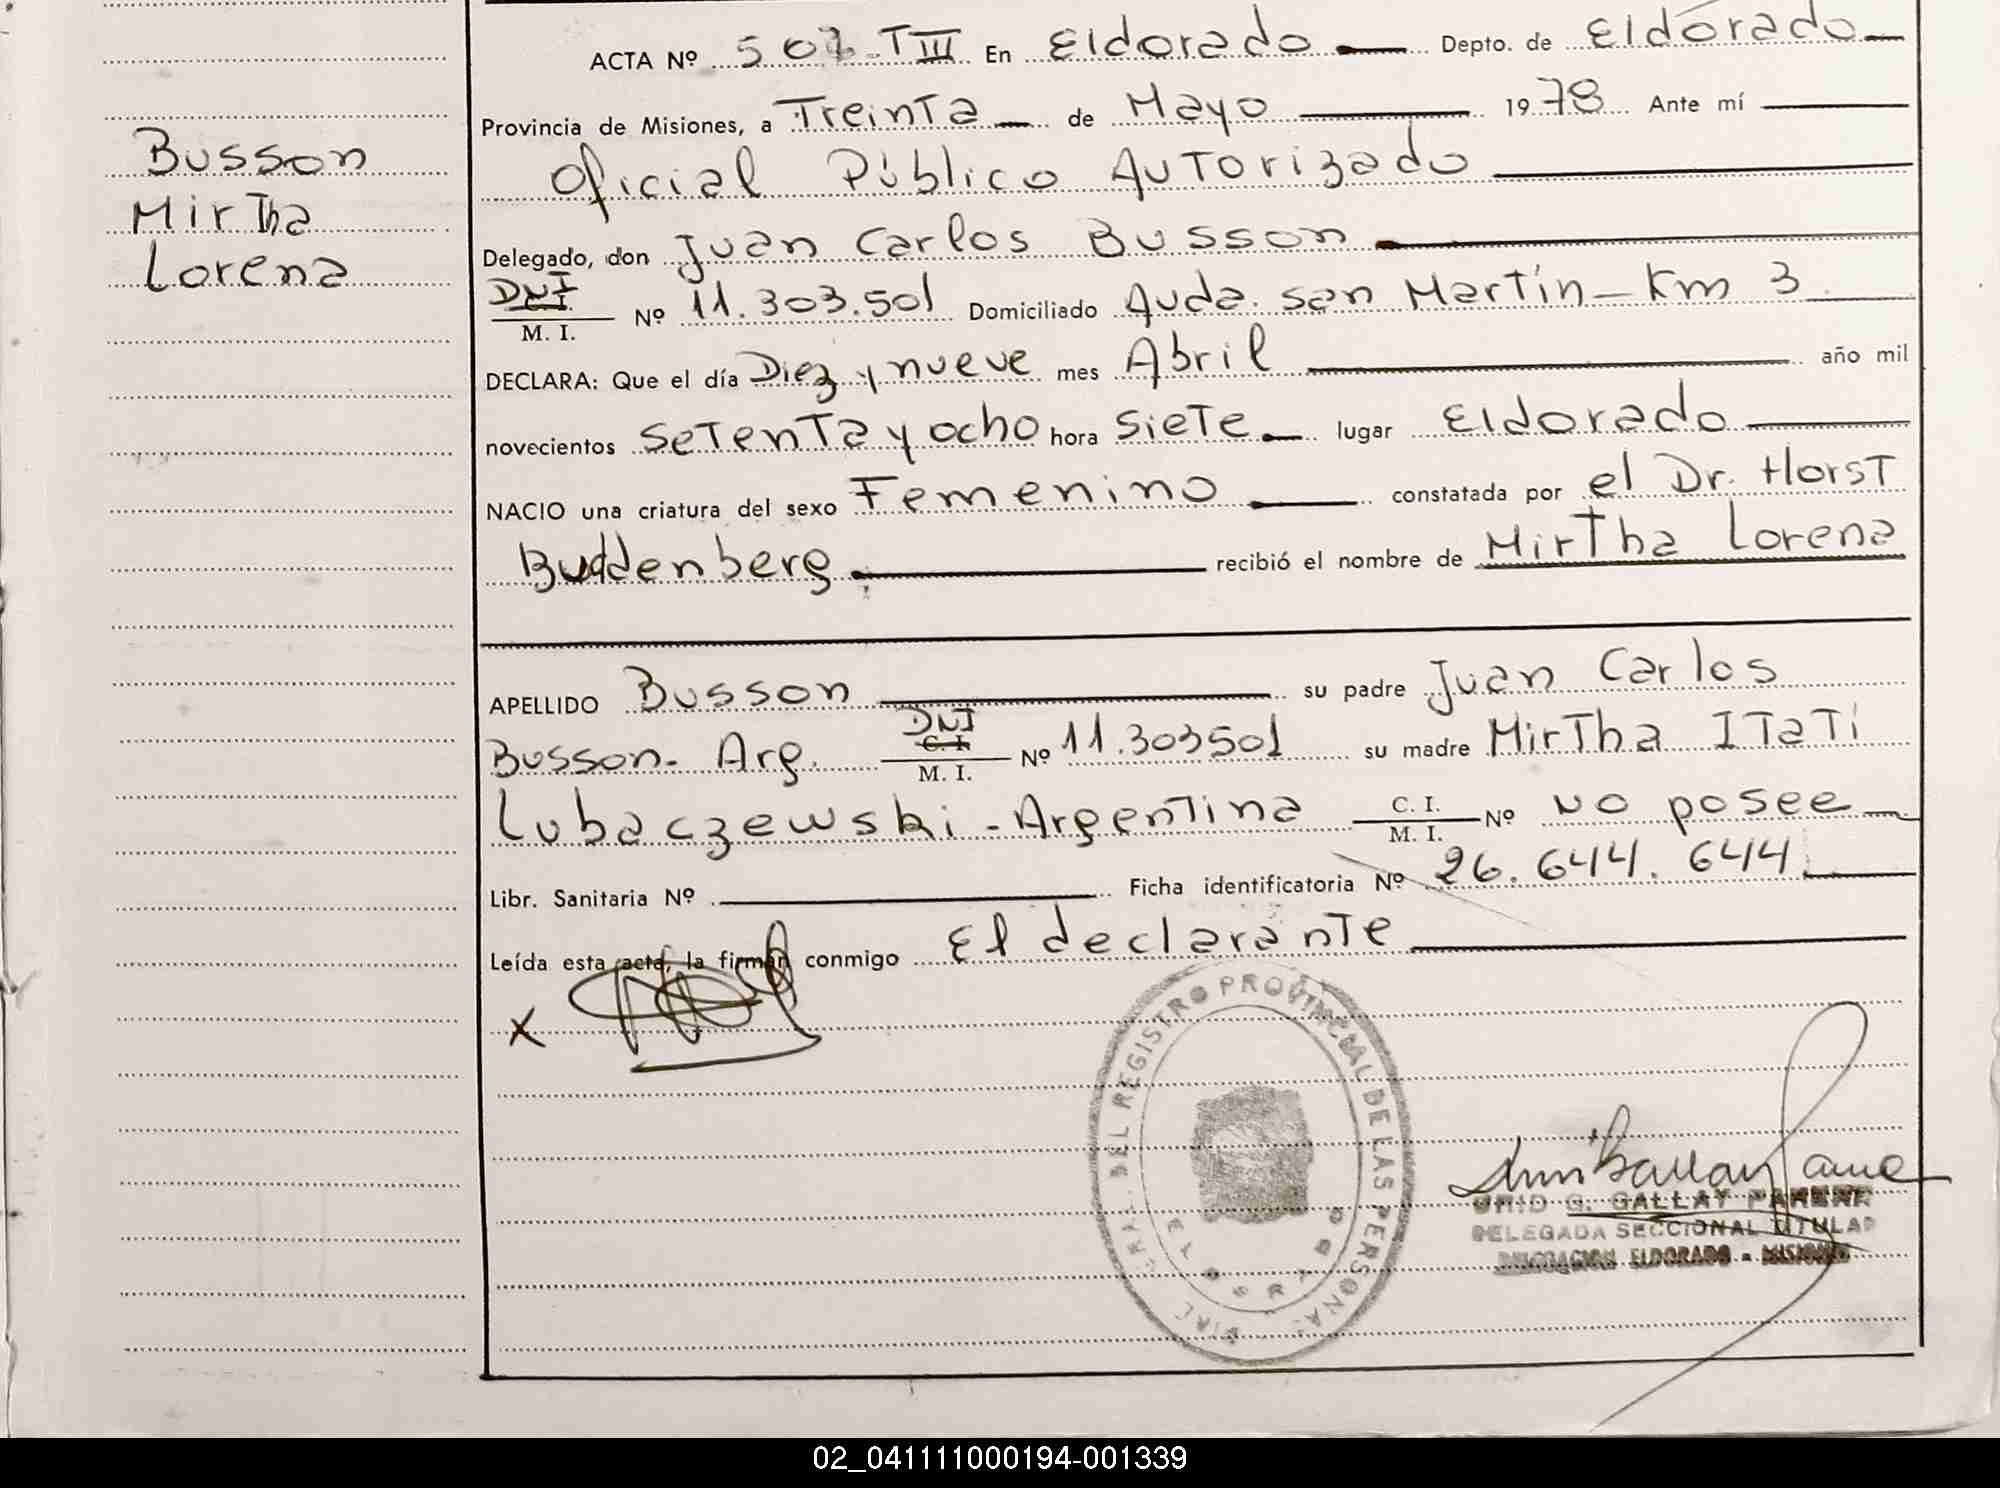 Busson
Mirtha
Lorena
ACTA Nº 507 - T III En Eldorado Depto. de Eldorado
Provincia de Misiones, a Treinta de Mayo 1978 Ante mí
Oficial Público Autorizado
Delegado, don Juan Carlos Busson
DNI
C. I.
M. I. Nº 11.303.501 Domiciliado Avda. San Martín - Km 3
DECLARA: Que el día Diez y nueve mes Abril año mil
novecientos setenta y ocho hora siete lugar Eldorado
NACIO una criatura del sexo Femenino constatada por el Dr. Horst
Buddenberg recibió el nombre de Mirtha Lorena
APELLIDO Busson su padre Juan Carlos
Busson - Arg. DNI C. I. M. I. Nº 11.303501 su madre Mirtha Itatí
Lubaczewski - Argentina C. I. M. I. Nº No posee
Libr. Sanitaria Nº Ficha identificatoria Nº 26.644.644
Leída esta acta, la firman conmigo El declarante
X
DEL REGISTRO PROVINCIAL DE LAS PERSONAS
G. GALLAY
DELEGADA SECCIONAL TITULAR
DELEGACION ELDORADO - MISIONES
02_041111000194-001339